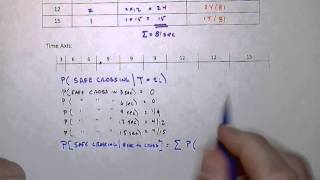 12 2 12×2 = 24 24/81
15 1 1×15 = 15 15/81
Σ = 81 sec
Time Axis:
3 6 9 12 12 15
P( SAFE CROSSING | T = t_i )
P( SAFE CROSS IN 3 sec) = 0
P( " " 6 sec) = 0
P( " " 9 sec) = 1/9
P( " " 12 sec) = 4/12
P( " " 15 sec) = 7/15
P[ SAFE CROSSING | TIME TO CROSS ] = Σ P(